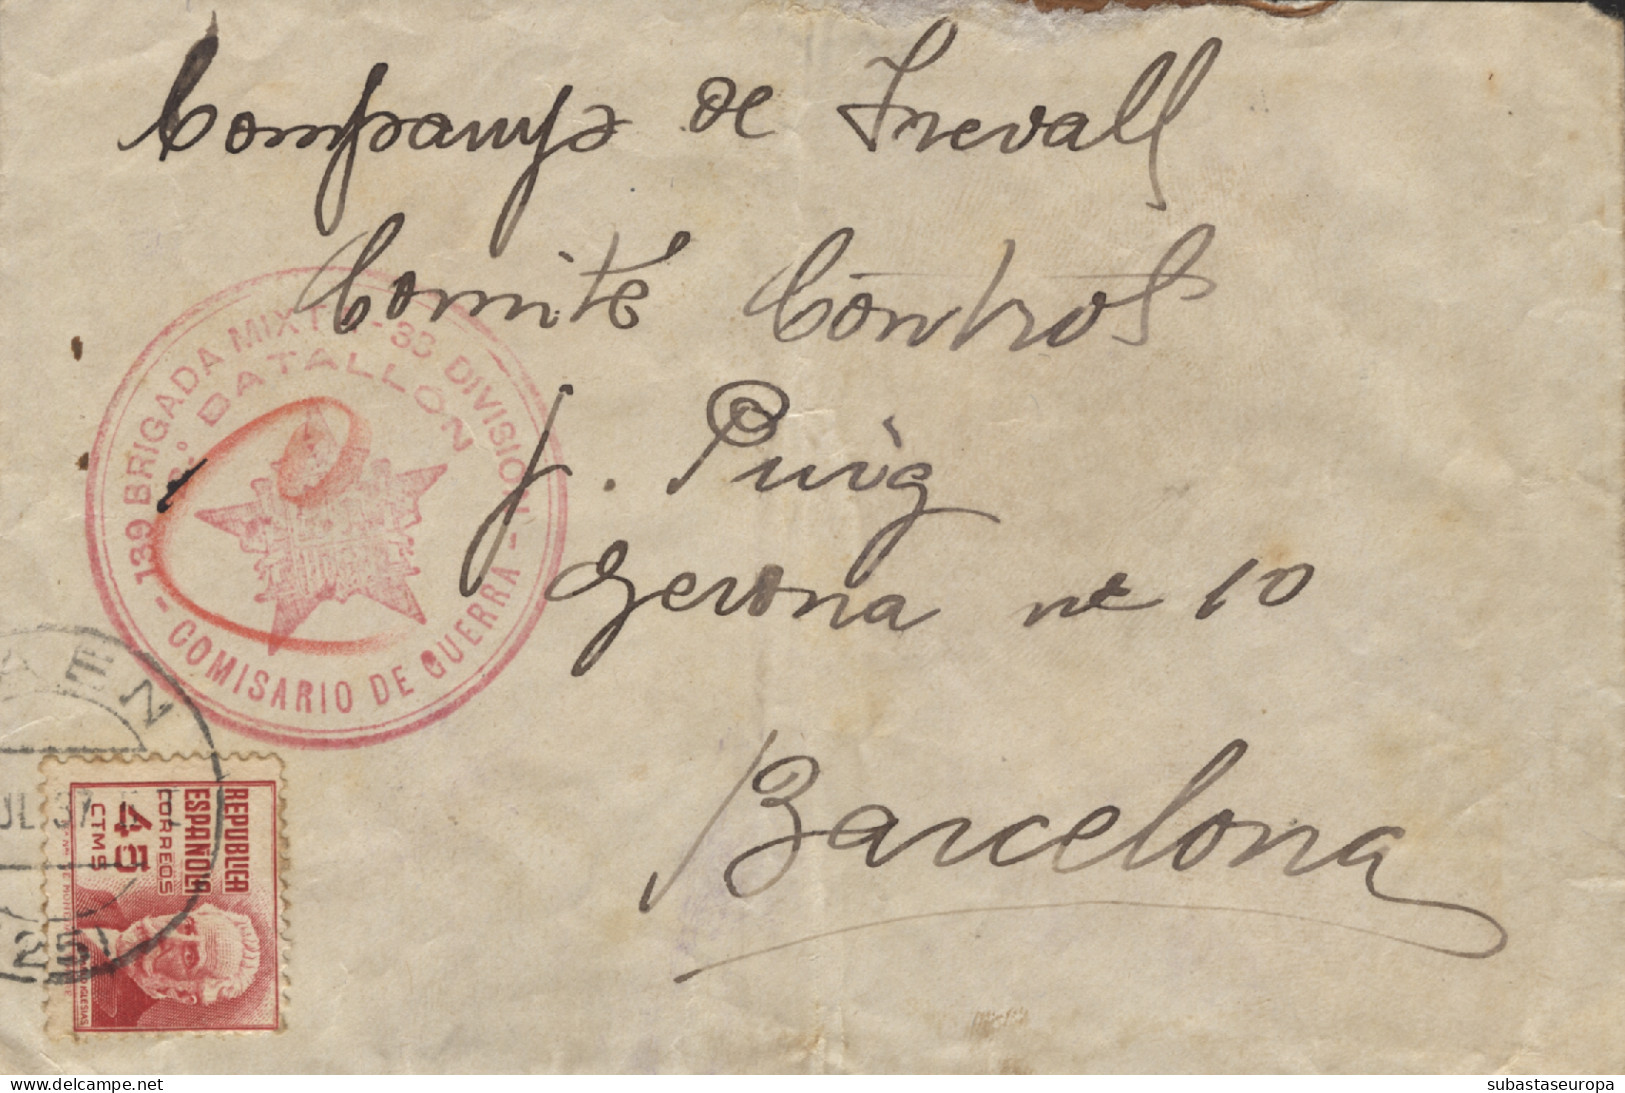 Companys de Trevall
Comité Control
J. Puig
Gerona nº 10
Barcelona
139 BRIGADA MIXTA - 33 DIVISION -
BATALLON
- COMISARIO DE GUERRA -
JUL 37
25
REPUBLICA
ESPAÑOLA
CORREOS
45
CTMS
IGLESIAS
delcampe.net
subastaseuropa